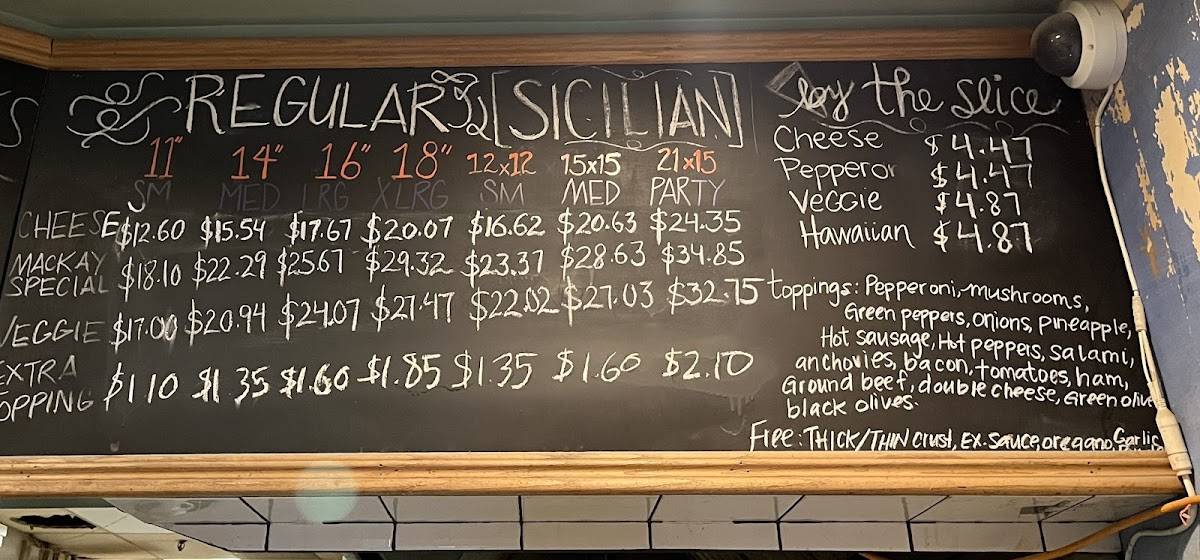 REGULAR [SICILIAN]
11" 14" 16" 18" 12x12 15x15 21x15
SM MED LRG XLRG SM MED PARTY
CHEESE $12.60 $15.54 $17.67 $20.07 $16.62 $20.63 $24.35
MACKAY SPECIAL $18.10 $22.29 $25.67 $29.32 $23.37 $28.63 $34.85
VEGGIE $17.00 $20.94 $24.07 $27.47 $22.02 $27.03 $32.75
EXTRA
TOPPING $1.10 $1.35 $1.60 $1.85 $1.35 $1.60 $2.10
by the slice
Cheese $4.47
Pepperor $4.47
Veggie $4.87
Hawaiian $4.87
toppings: Pepperoni, mushrooms,
Green peppers, onions, pineapple,
Hot sausage, Hot peppers, salami,
anchovies, bacon, tomatoes, ham,
Ground beef, double cheese, Green olive
black olives.
Free: THICK/THIN crust, EX. sauce, oregano, Garlic